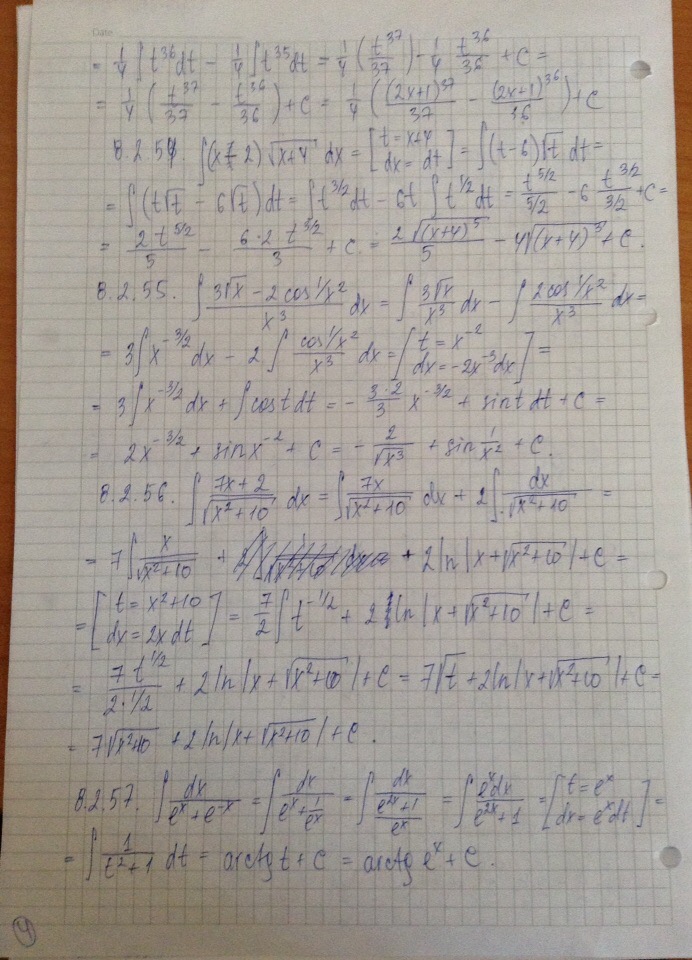 Date
= 1/4 ∫ t^36 dt - 1/4 ∫ t^35 dt = 1/4 (t^37/37) - 1/4 t^36/36 + C =
= 1/4 (t^37/37 - t^36/36) + C = 1/4 ((2x+1)^37/37 - (2x+1)^36/36) + C
8.2.54. ∫(x - 2)√(x+4) dx = [t = x+4 dx = dt] = ∫(t-6)√t dt =
= ∫(t√t - 6√t) dt = ∫t^(3/2) dt - 6t ∫t^(1/2) dt = t^(5/2)/(5/2) - 6 t^(3/2)/(3/2) + C =
= 2t^(5/2)/5 - 6·2 t^(3/2)/3 + C = 2√((x+4)^5)/5 - 4√((x+4)^3) + C.
8.2.55. ∫ (3√x - 2cos 1/x^2)/x^3 dx = ∫ 3√x/x^3 dx - ∫ (2cos 1/x^2)/x^3 dx =
= 3∫x^(-3/2) dx - 2∫ (cos 1/x^2)/x^3 dx = [t = x^-2 dx = -2x^-3 dx] =
= 3∫x^(-3/2) dx + ∫cos t dt = - 3·2/3 x^(-3/2) + sin t dt + C =
= 2x^(-3/2) + sin x^-2 + C = - 2/√(x^3) + sin 1/x^2 + C.
8.2.56. ∫ (7x+2)/√(x^2+10) dx = ∫ 7x/√(x^2+10) dx + 2∫ dx/√(x^2+10) =
= 7∫ x/√(x^2+10) + + 2ln|x+√(x^2+10)| + C =
= [t = x^2+10 dx = 2x dt] = 7/2 ∫t^(-1/2) + 2 ln|x+√(x^2+10)| + C =
= 7t^(1/2)/(2·1/2) + 2ln|x+√(x^2+10)| + C = 7√t + 2ln|x+√(x^2+10)| + C =
= 7√(x^2+10) + 2ln|x+√(x^2+10)| + C.
8.2.57. ∫ dx/(e^x+e^-x) = ∫ dx/(e^x+1/e^x) = ∫ dx/((e^2x+1)/e^x) = ∫ e^x dx/(e^2x+1) = [t = e^x dx = e^x dt] =
= ∫ 1/(t^2+1) dt = arctg t + C = arctg e^x + C.
4